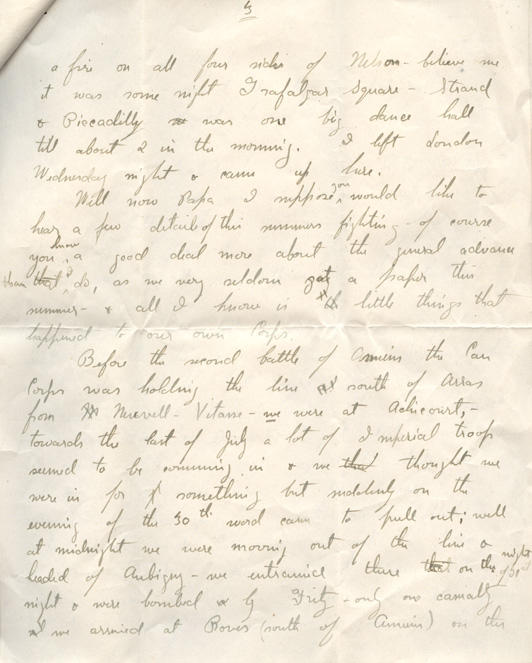 5
a fire on all four sides of Nelson - believe me
it was some night Trafalgar Square - Strand
& Piccadilly was one big dance hall
till about 2 in the morning. I left London
Wednesday night & came up here.
Well now Papa I suppose you would like to
hear a few details of this summers fighting - of course
you know a good deal more about the general advance
than that I do, as we very seldom got a paper this
summer - & all I know is the little things that
happened to our own Corps.
Before the second battle of Amiens the Can
Corps was holding the line south of Arras
from - Vitasse - we were at Achicourt, -
towards the last of July a lot of Imperial troops
seemed to be comming in & we that thought we
were in for something but suddenly on the
evening of the 30th word came to pull out; well
at midnight we were moving out of the line &
headed of Aubigny - we entrained there that on the night of 31st
night & were bombed by Fritz - only one casualty
we arrived at Boves (south of Amiens) on the